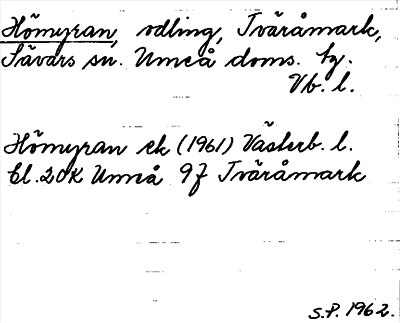 Hömyran, odling, Tväråmark,
Sävars sn. Umeå doms. tg.
Vb. l.
Hömyran ek (1961) Västerb. l.
bl. 20K Umeå 9f Tväråmark
S.P. 1962.